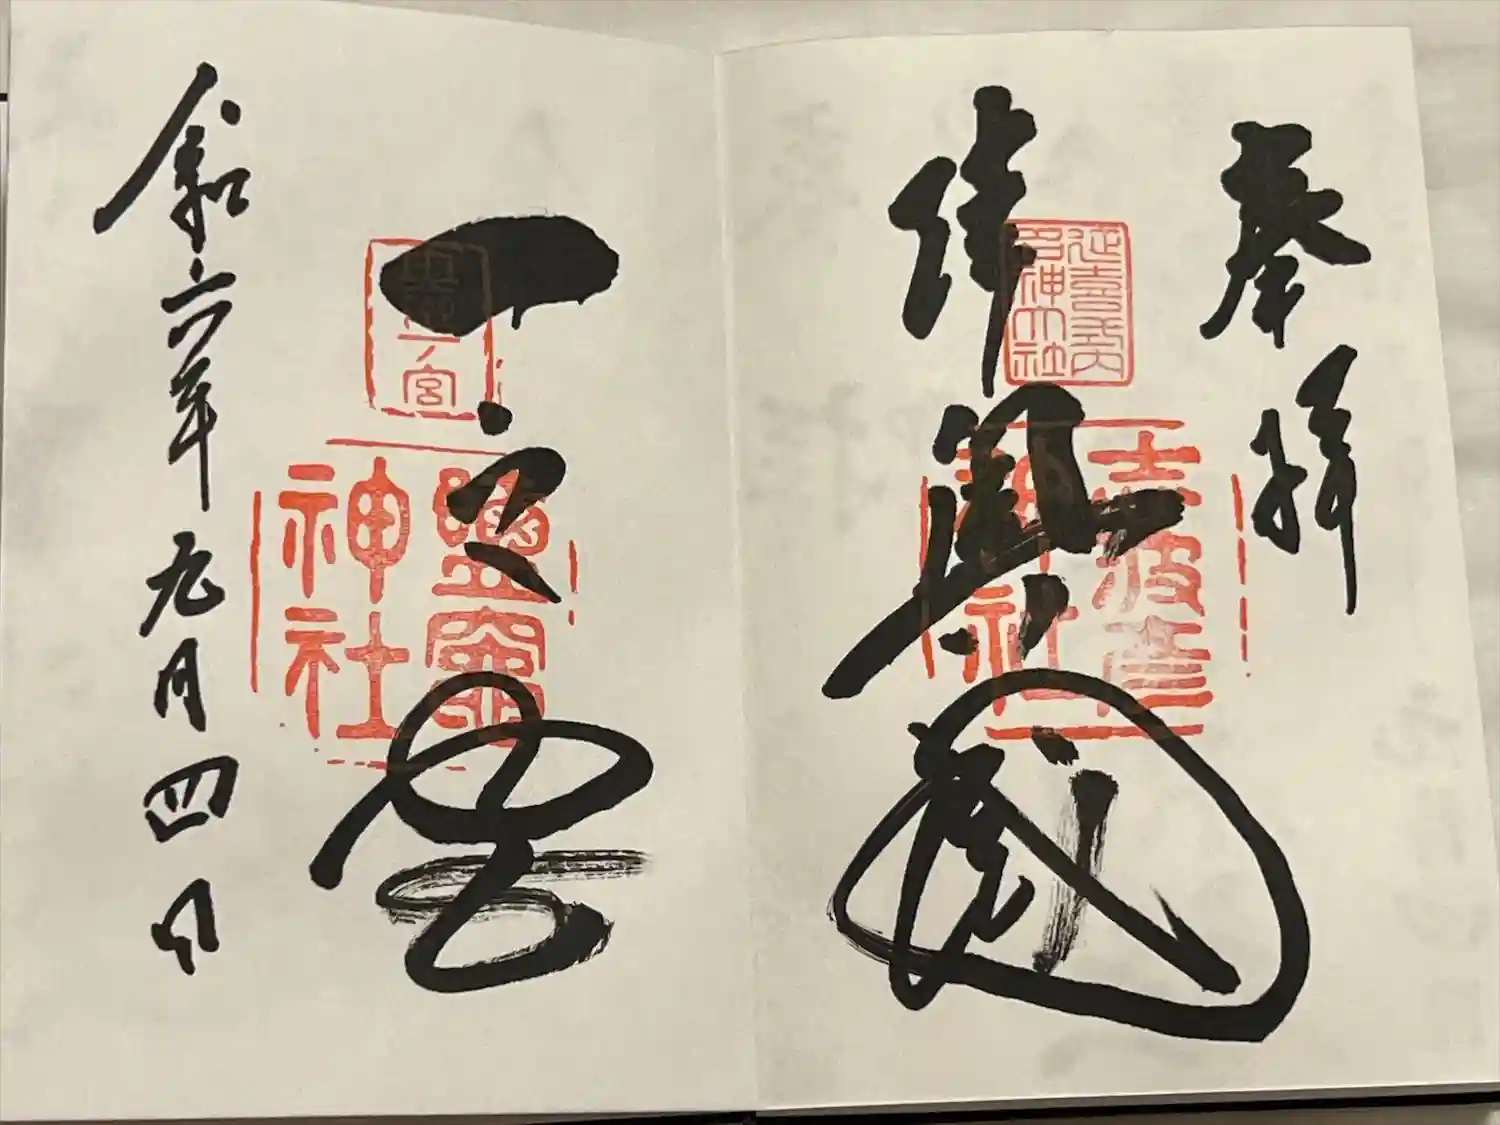 奉拝
陸奥國
延喜式内
名神大社
志波彦
神社
一之宮
鹽竈
神社
令和六年九月四日